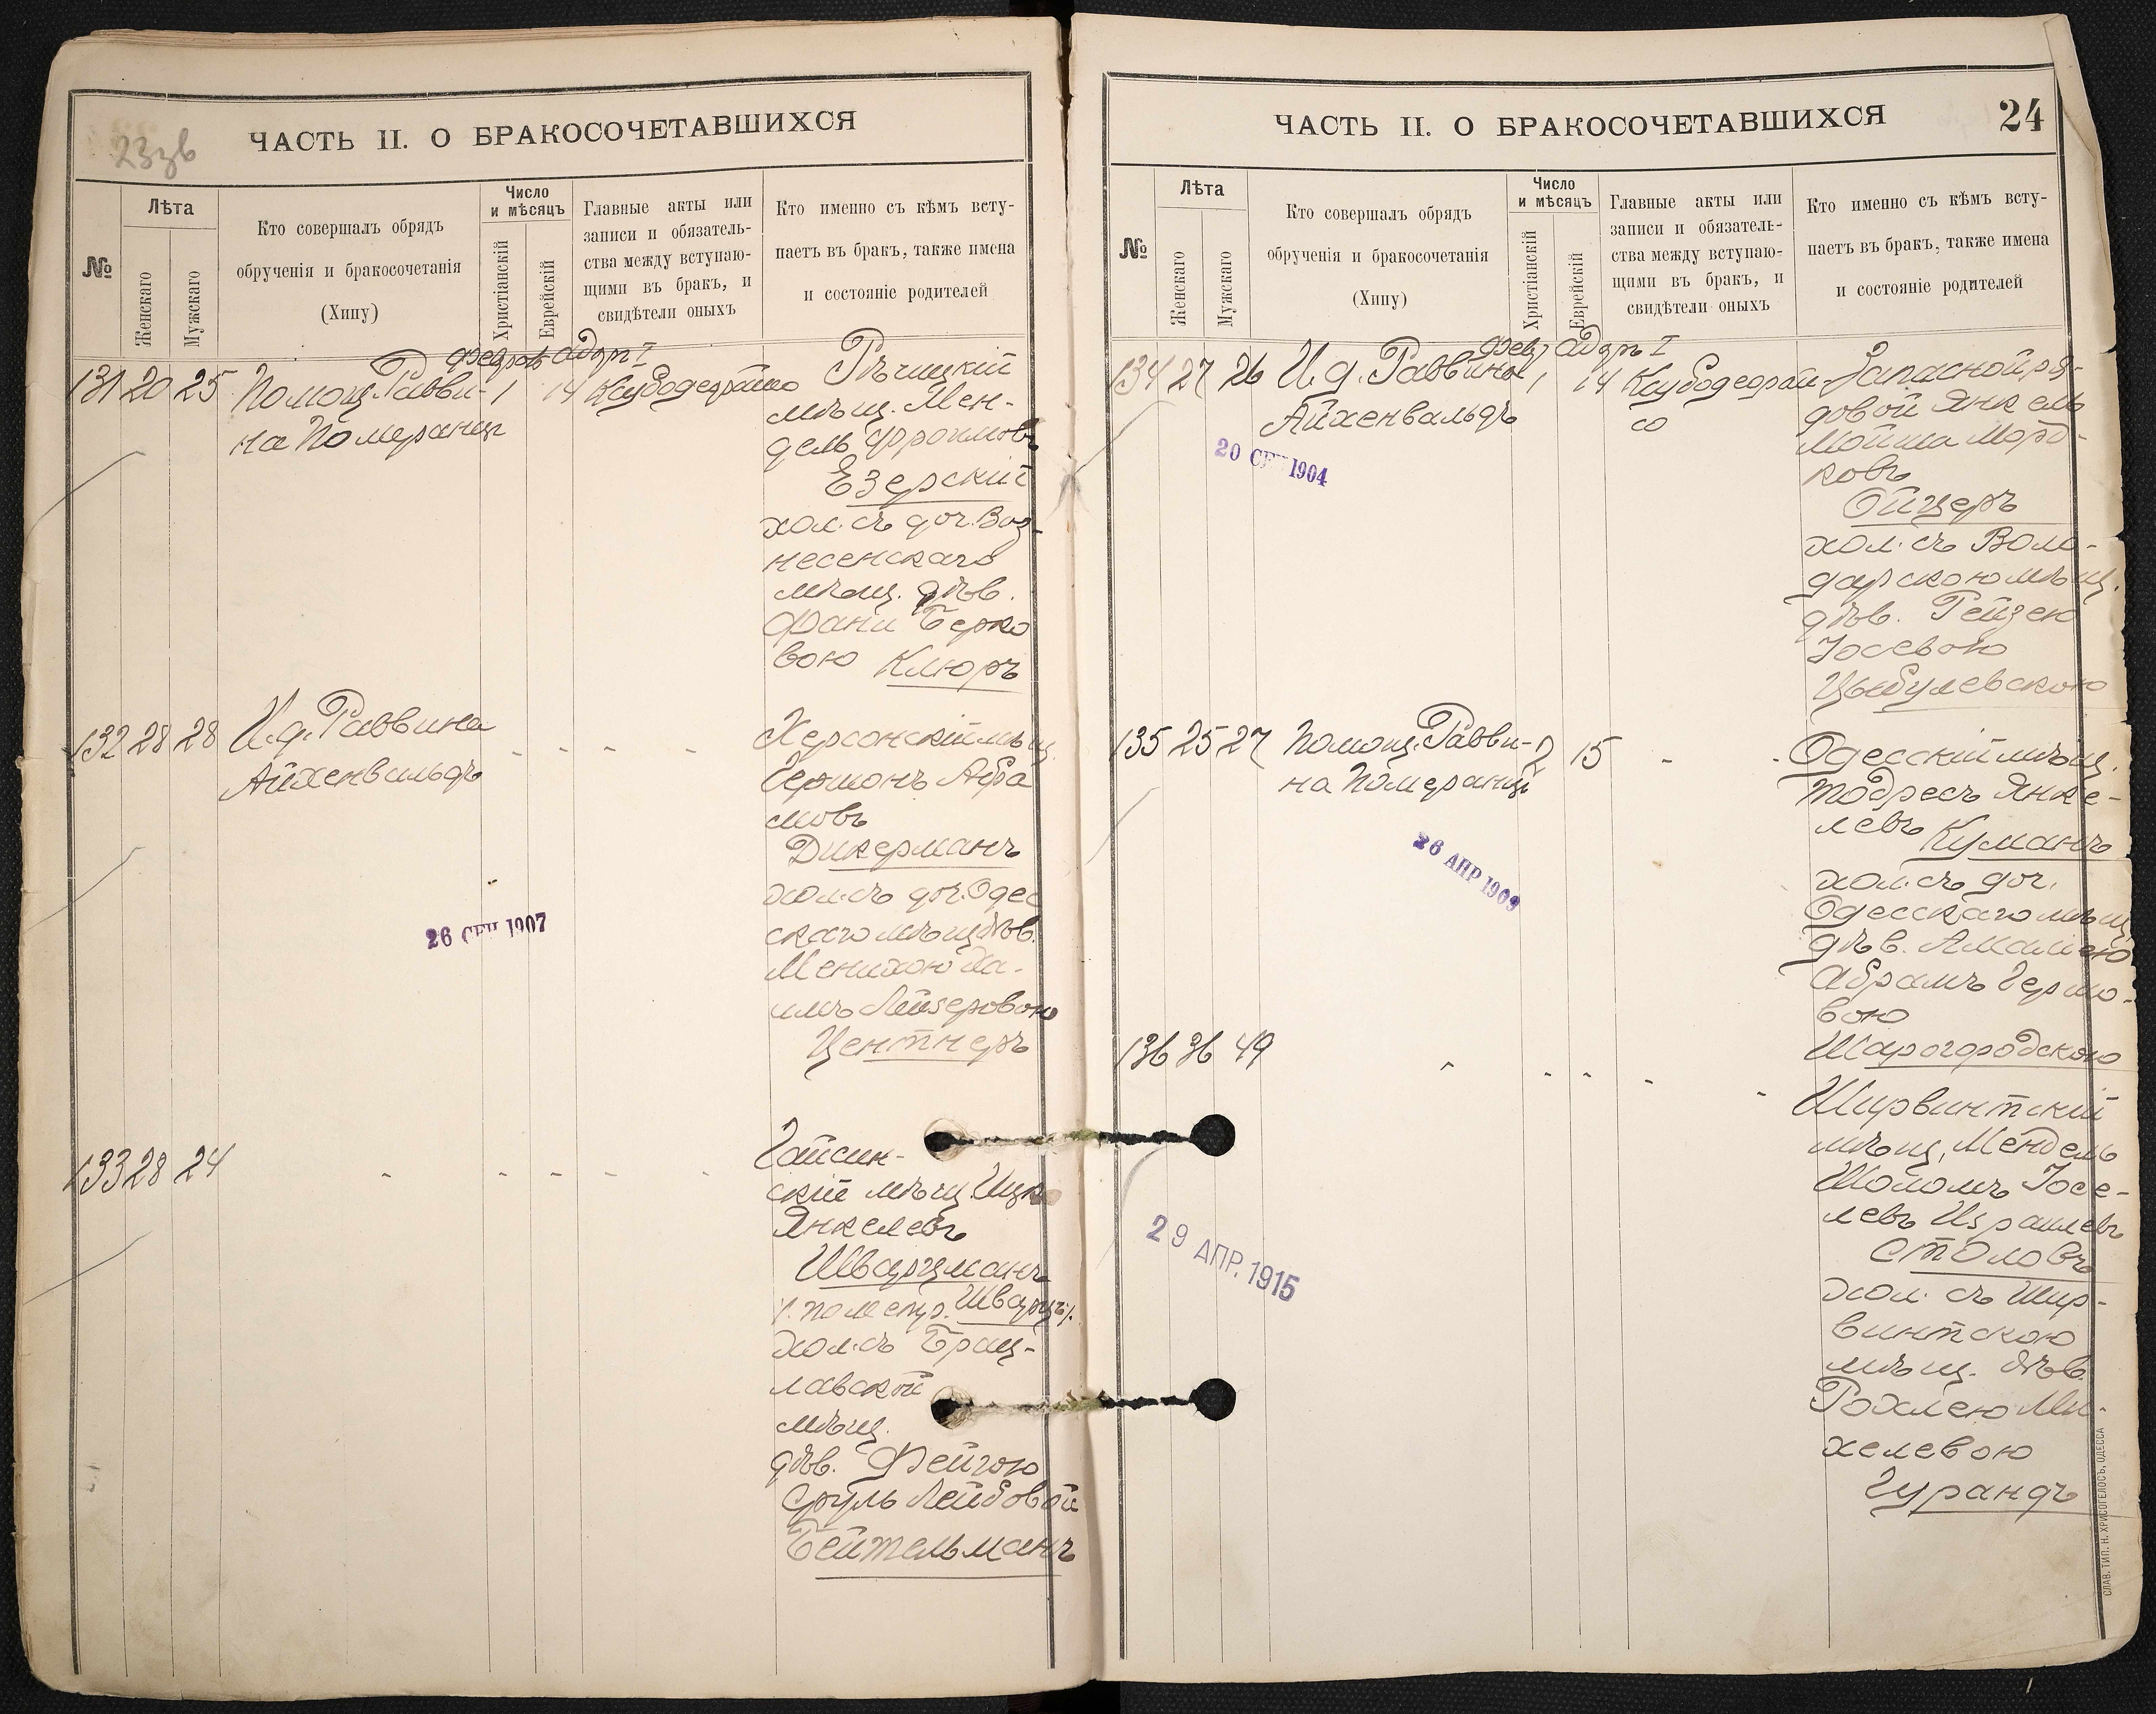 23зв
ЧАСТЬ II. О БРАКОСОЧЕТАВШИХСЯ
№
Лѣта
Женскаго
Мужскаго
Кто совершалъ обрядъ
обрученія и бракосочетанія
(Хипу)
Число
и мѣсяцъ
Христіанскій
Еврейскій
Главные акты или
записи и обязатель-
ства между вступаю-
щими въ бракъ, и
свидѣтели оныхъ
Кто именно съ кѣмъ всту-
паетъ въ бракъ, также имена
и состояніе родителей
Адаръ I
131 20 25 Помощ. Равви- 1 14
на Померанцъ
Рѣчицкій
мѣщ. Мен-
дель Фроимовъ
Езерскій
хол. съ доч. Воз-
несенскаго
мѣщ. дѣв.
Фани Берко
вою Клюръ
132 28 28 И.д. Раввина - - - - -
Айхенвальдъ
Херсонскій мѣщ.
Германъ Абра
мовъ
Дикерманъ
хол. съ доч. Одес
скаго мѣщ. дѣв.
Менихою Ха-
имъ Лейзеровою
Центнеръ
26 СЕН 1907
133 28 24 - - - - - -
Гайсин-
скій мѣщ. Ицко
Янкелевъ
Шварцманъ
/. по метр. Шварцъ /.
хол. съ Брац-
лавской
мѣщ.
дѣв. Фейгою
Сруль Лейбовой
Бейтельманъ
ЧАСТЬ II. О БРАКОСОЧЕТАВШИХСЯ
24
№
Лѣта
Женскаго
Мужскаго
Кто совершалъ обрядъ
обрученія и бракосочетанія
(Хипу)
Число
и мѣсяцъ
Христіанскій
Еврейскій
Главные акты или
записи и обязатель-
ства между вступаю-
щими въ бракъ, и
свидѣтели оныхъ
Кто именно съ кѣмъ всту-
паетъ въ бракъ, также имена
и состояніе родителей
Февр. Адаръ I
134 27 26 И.д. Раввина 1 14
Айхенвальдъ
20 СЕН 1904
Запасной ря-
довой Янкель
Мойша Морд-
ковъ
Ойцеръ
хол. съ Воло-
дарскою мѣщ.
дѣв. Рейзею
Іосевою
Цыбулевскою
135 25 27 Помощ. Равви- 2 15 - -
на Померанцъ
26 АПР 1909
Одесскій мѣщ.
Тодресъ Янке-
левъ Куманъ
хол. съ доч.
Одесскаго мѣщ.
дѣв. Амалією
Абрамъ Гершо-
вою
Шарогородскою
136 36 49 - - - - -
29 АПР. 1915
Ширвинтскій
мѣщ. Мендель
Шоломъ Іосе-
левъ Израилевъ
Столовъ
хол. съ Шир-
винтскою
мѣщ. дѣв.
Рохлею Ми-
хелевою
Гурандъ
СЛАВ. ТИП. Н. ХРИСОГЕЛОСЪ, ОДЕССА